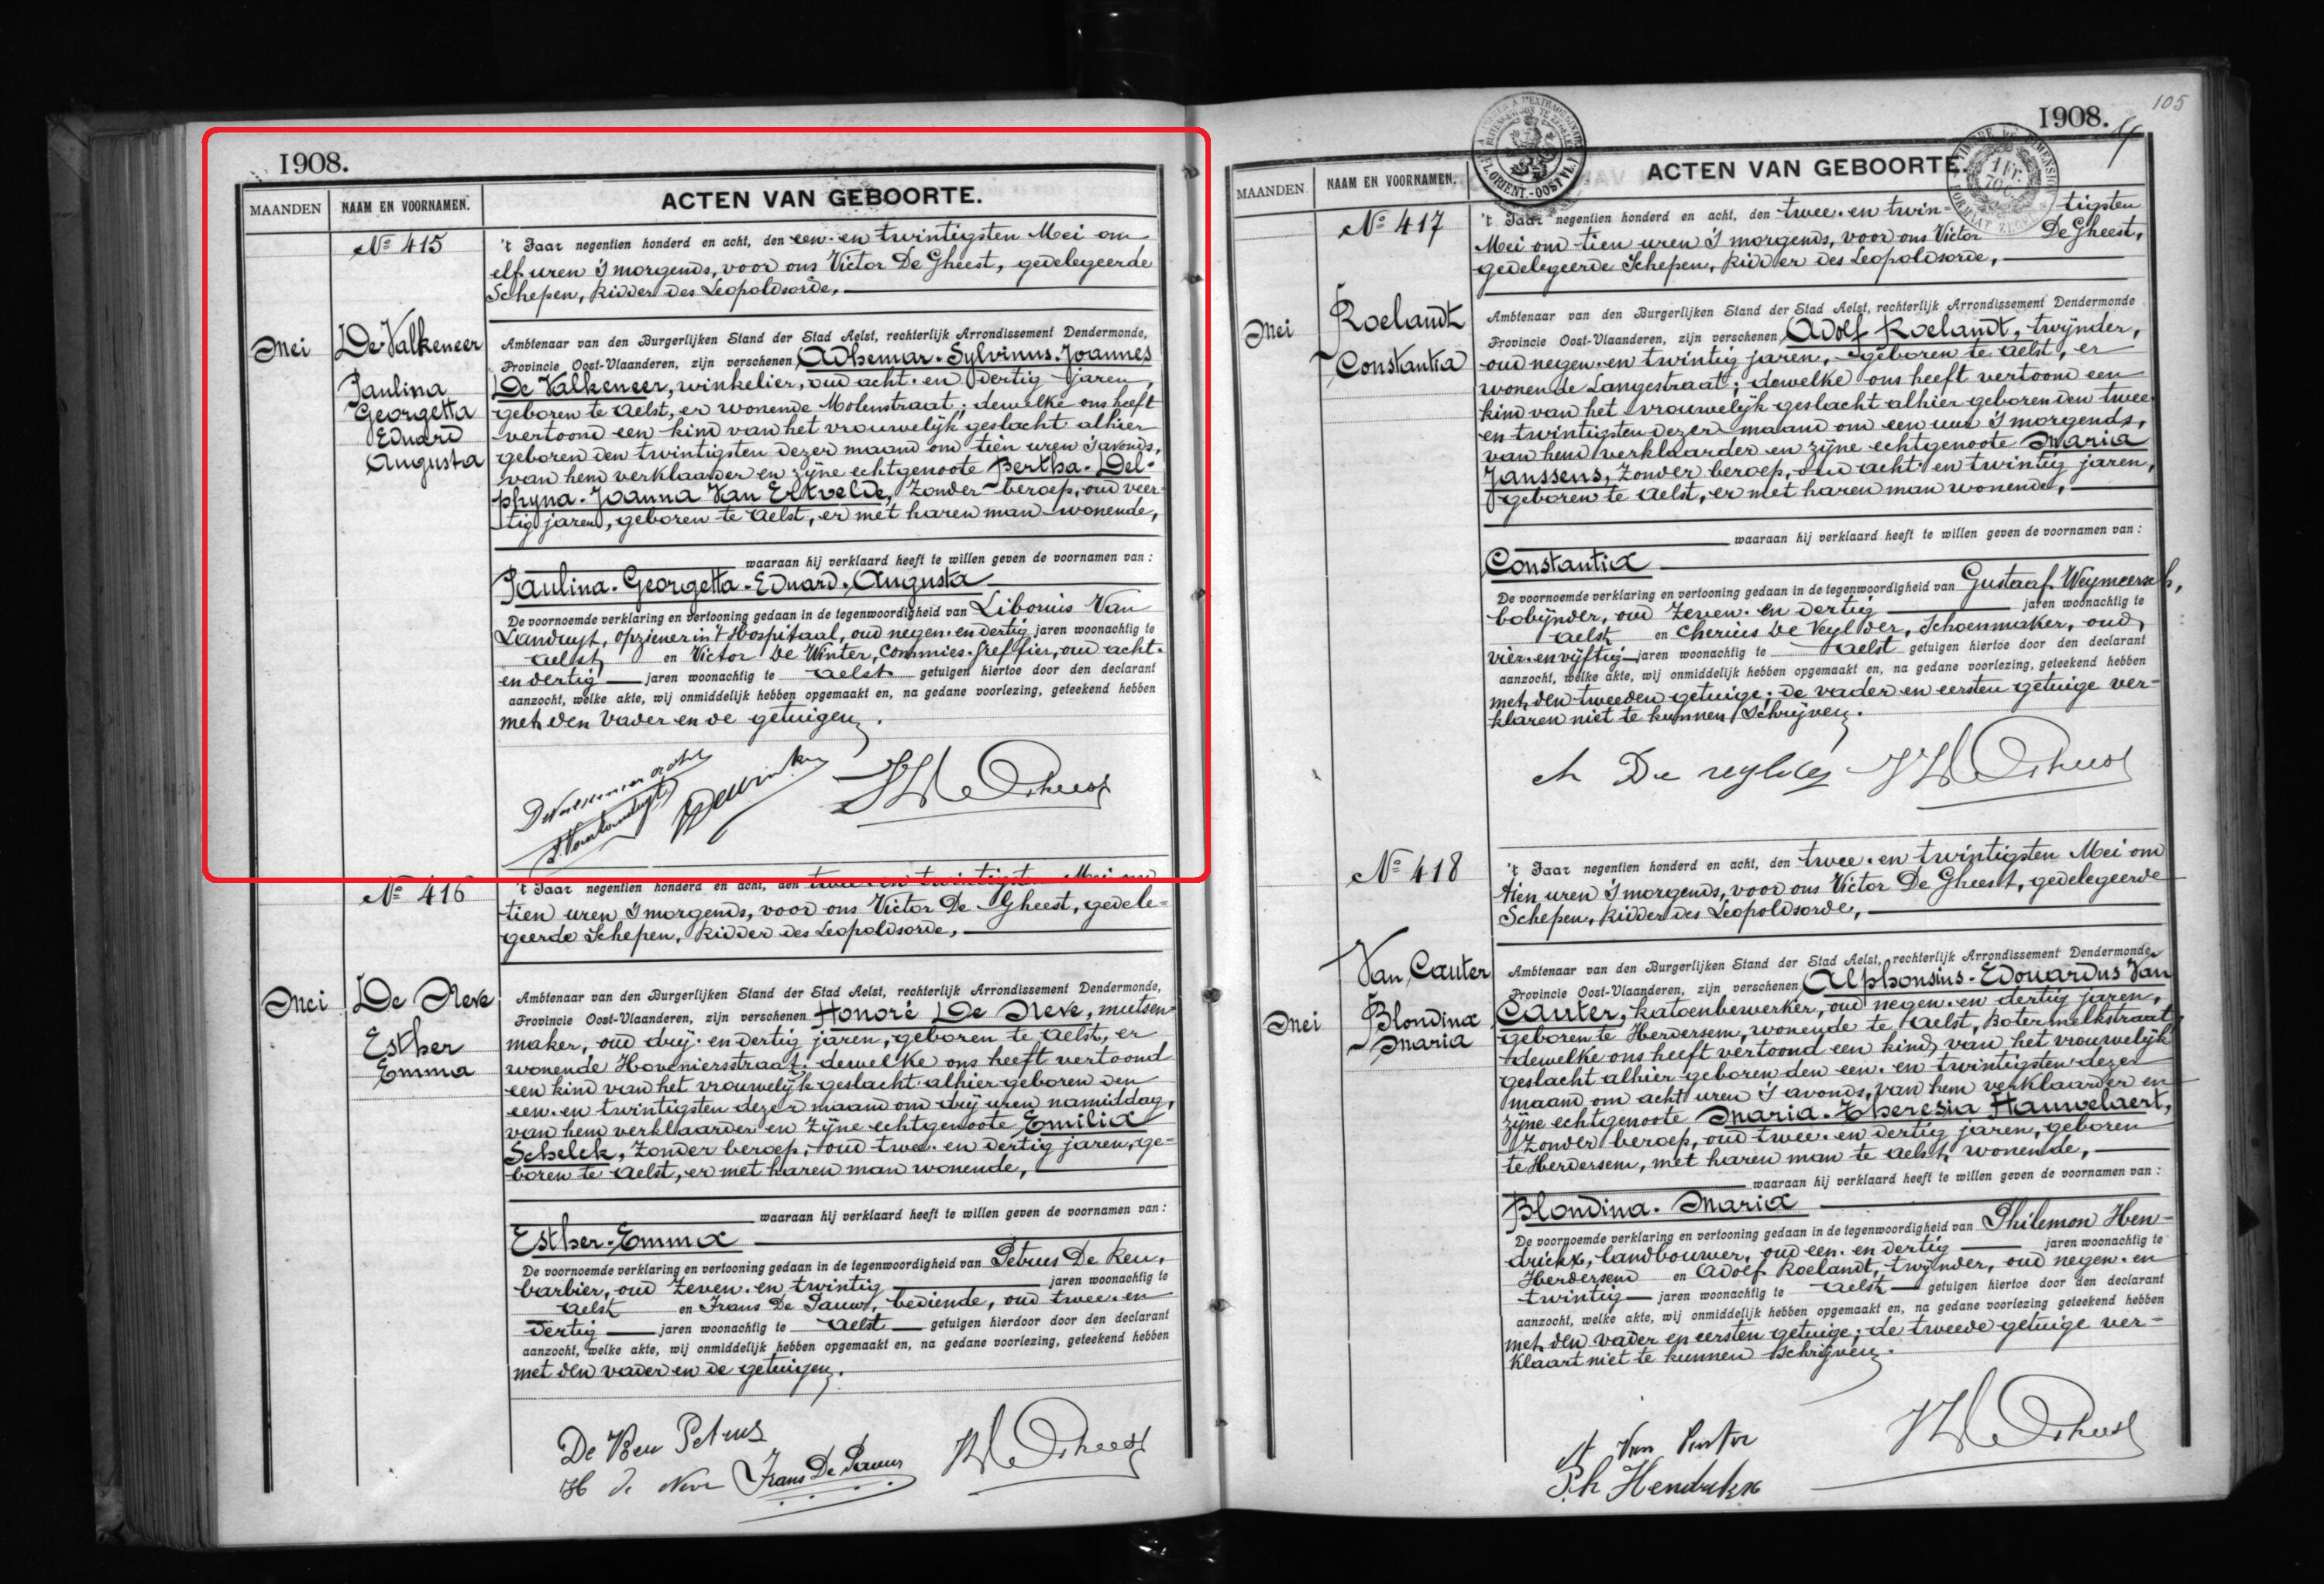 1908.
MAANDEN
NAAM EN VOORNAMEN.
ACTEN VAN GEBOORTE.
No 415
't Jaar negentien honderd en acht, den een-en twintigsten Mei om
elf uren 's morgends, voor ons Victor De Gheest, gedelegeerde
Schepen, Ridder des Leopoldsorde,
Mei
De Valkeneer
Paulina
Georgetta
Eduard
Augusta
Ambtenaar van den Burgerlijken Stand der Stad Aelst, rechterlijk Arrondissement Dendermonde,
Provincie Oost-Vlaanderen, zijn verschenen Adhemar-Sylvinus-Joannes
De Valkeneer, winkelier, oud acht-en dertig jaren,
geboren te Aelst, er wonende Molenstraat; dewelke ons heeft
vertoond een kind van het vrouwelijk geslacht alhier
geboren den twintigsten dezer maand om tien uren 's avonds,
van hem verklaarder en zijne echtgenoote Bertha-Del-
phyna-Joanna Van Ertvelde, zonder beroep, oud veer-
tig jaren, geboren te Aelst, er met haren man wonende,
waaraan hij verklaard heeft te willen geven de voornamen van :
Paulina-Georgetta-Eduard-Augusta
De voornoemde verklaring en vertooning gedaan in de tegenwoordigheid van Liborius Van
Landuyt, opziener in 't Hospitaal, oud negen-en dertig jaren woonachtig te
Aelst en Victor De Winter, Commies-greffier, oud acht-
en dertig jaren woonachtig te Aelst getuigen hiertoe door den declarant
aanzocht, welke akte, wij onmiddelijk hebben opgemaakt en, na gedane voorlezing, geteekend hebben
met den vader en de getuigen.
No 416
't Jaar negentien honderd en acht, den twee-en twintigsten Mei om
tien uren 's morgends, voor ons Victor De Gheest, gedele-
geerde Schepen, Ridder des Leopoldsorde,
Mei
De Neve
Esther
Emma
Ambtenaar van den Burgerlijken Stand der Stad Aelst, rechterlijk Arrondissement Dendermonde,
Provincie Oost-Vlaanderen, zijn verschenen Honoré De Neve, mutsen-
maker, oud drij-en dertig jaren, geboren te Aelst, er
wonende Hoveniersstraat; dewelke ons heeft vertoond
een kind van het vrouwelijk geslacht alhier geboren den
een-en twintigsten dezer maand om drij uren namiddag,
van hem verklaarder en zijne echtgenoote Emilia
Schelck, zonder beroep, oud twee-en dertig jaren, ge-
boren te Aelst, er met haren man wonende,
waaraan hij verklaard heeft te willen geven de voornamen van :
Esther-Emma
De voornoemde verklaring en vertooning gedaan in de tegenwoordigheid van Petrus De Keu,
barbier, oud zeven-en twintig jaren woonachtig te
Aelst en Frans De Pauw, bediende, oud twee-en
dertig jaren woonachtig te Aelst getuigen hierdoor door den declarant
aanzocht, welke akte, wij onmiddelijk hebben opgemaakt en, na gedane voorlezing, geteekend hebben
met den vader en de getuigen.
De Keu Petrus
H de Neve Frans De Pauw
105
1908.
MAANDEN
NAAM EN VOORNAMEN.
ACTEN VAN GEBOORTE.
No 417
't Jaar negentien honderd en acht, den twee-en twin- tigsten
Mei om tien uren 's morgends, voor ons Victor De Gheest,
gedelegeerde Schepen, Ridder des Leopoldsorde,
Mei
Roelandt
Constantia
Ambtenaar van den Burgerlijken Stand der Stad Aelst, rechterlijk Arrondissement Dendermonde
Provincie Oost-Vlaanderen, zijn verschenen Adolf Roelandt, twijnder,
oud negen-en twintig jaren, geboren te Aelst, er
wonende Langestraat; dewelke ons heeft vertoond een
kind van het vrouwelijk geslacht alhier geboren den twee-
en twintigsten dezer maand om een ure 's morgends,
van hem verklaarder en zijne echtgenoote Maria
Janssens, zonder beroep, oud acht en twintig jaren,
geboren te Aelst, er met haren man wonende,
waaraan hij verklaard heeft te willen geven de voornamen van :
Constantia
De voornoemde verklaring en vertooning gedaan in de tegenwoordigheid van Gustaaf Weymeersch,
bobijnder, oud zeven-en dertig jaren woonachtig te
Aelst en Cherius De Veylder, Schoenmaker, oud
vier-en vijftig jaren woonachtig te Aelst getuigen hiertoe door den declarant
aanzocht, welke akte, wij onmiddelijk hebben opgemaakt en, na gedane voorlezing, geteekend hebben
met den tweeden getuige; de vader en eersten getuige ver-
klaren niet te kunnen schrijven.
No 418
't Jaar negentien honderd en acht, den twee-en twintigsten Mei om
tien uren 's morgends, voor ons Victor De Gheest, gedelegeerde
Schepen, Ridder des Leopoldsorde,
Mei
Van Cauter
Blondina
Maria
Ambtenaar van den Burgerlijken Stand der Stad Aelst, rechterlijk Arrondissement Dendermonde
Provincie Oost-Vlaanderen, zijn verschenen Alphonsius-Edouardus Van
Cauter, katoenbewerker, oud negen-en dertig jaren,
geboren te Herdersem, wonende te Aelst, Botermelkstraat,
dewelke ons heeft vertoond een kind van het vrouwelijk
geslacht alhier geboren den een-en twintigsten dezer
maand om acht uren 's avonds, van hem verklaarder en
zijne echtgenoote Maria-Theresia Hauwelaert,
zonder beroep, oud twee-en dertig jaren, geboren
te Herdersem, met haren man te Aelst wonende,
waaraan hij verklaard heeft te willen geven de voornamen van :
Blondina-Maria
De voornoemde verklaring en vertooning gedaan in de tegenwoordigheid van Philemon Hen-
drickx, landbouwer, oud een-en dertig jaren woonachtig te
Herdersem en Adolf Roelandt, twijnder, oud negen-en
twintig jaren woonachtig te Aelst getuigen hiertoe door den declarant
aanzocht, welke akte, wij onmiddelijk hebben opgemaakt en, na gedane voorlezing geteekend hebben
met den vader en eersten getuige; de tweede getuige ver-
klaart niet te kunnen schrijven.
Ph Hendrickx